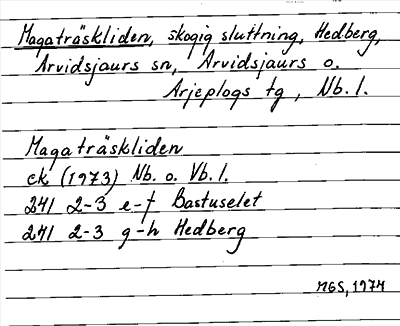 Magaträskliden, skogig sluttning, Hedberg,
Arvidsjaurs sn, Arvidsjaurs o.
Arjeplogs tg, Nb. l.
Magaträskliden
ek (1973) Nb. o. Vb. l.
241 2-3 e-f Bastuselet
241 2-3 g-h Hedberg
MGS, 1974